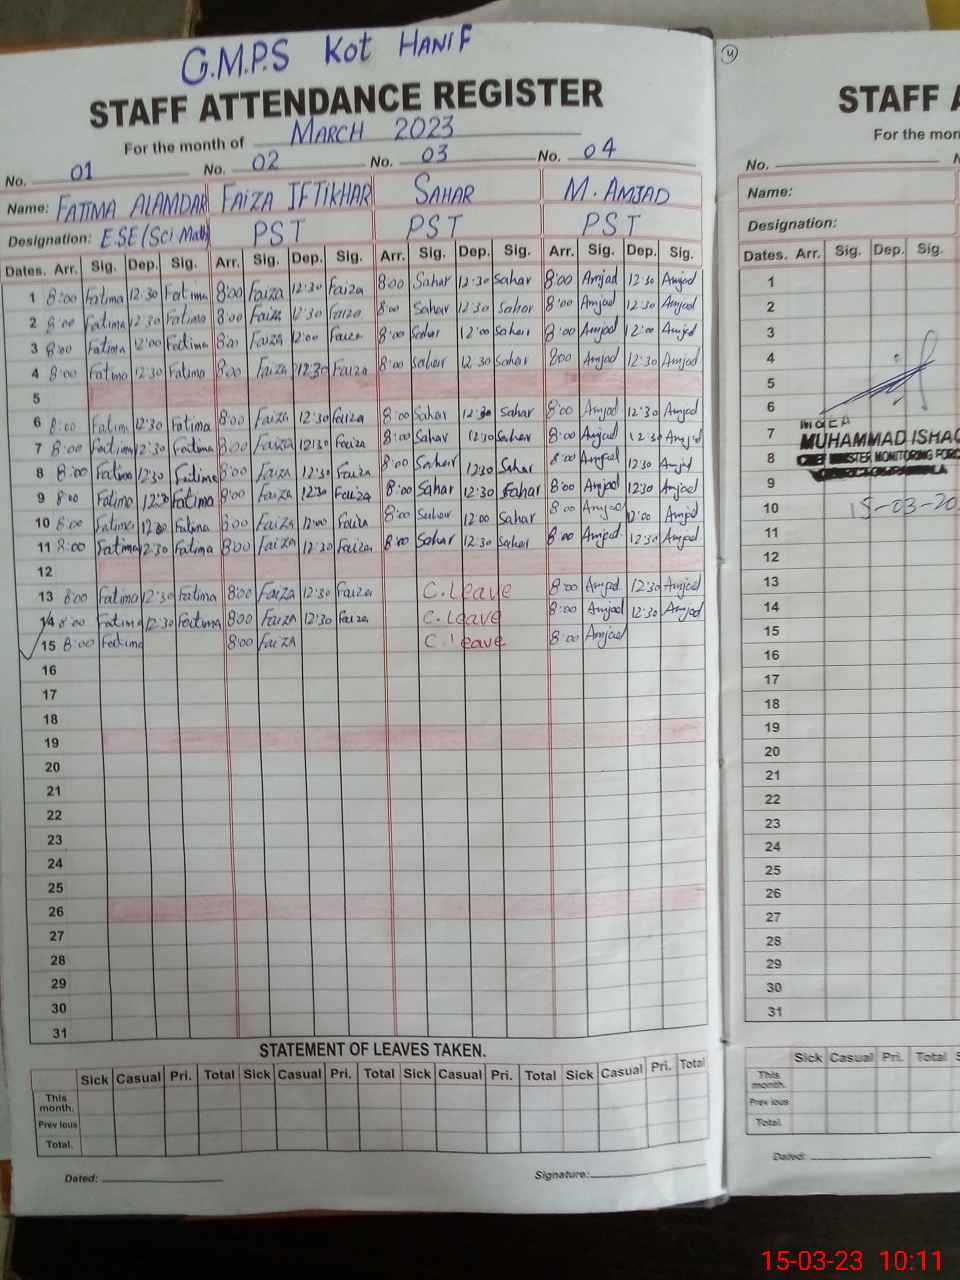 G.M.P.S Kot HANIF
STAFF ATTENDANCE REGISTER
For the month of MARCH 2023
No. 01 No. 02 No. 03 No. 04
Name: FATIMA ALAMDAR FAIZA IFTIKHAR SAHAR M. AMJAD
Designation: ESE (Sci Math) PST PST PST
Dates. Arr. Sig. Dep. Sig. Arr. Sig. Dep. Sig. Arr. Sig. Dep. Sig. Arr. Sig. Dep. Sig.
1 8:00 Fatima 12:30 Fatima 8:00 Faiza 12:30 Faiza 8:00 Sahar 12:30 Sahar 8:00 Amjad 12:30 Amjad
2 8:00 Fatima 12:30 Fatima 8:00 Faiza 12:30 Faiza 8:00 Sahar 12:30 Sahar 8:00 Amjad 12:30 Amjad
3 8:00 Fatima 12:00 Fatima 8:00 Faiza 12:00 Faiza 8:00 Sahar 12:00 Sahar 8:00 Amjad 12:00 Amjad
4 8:00 Fatima 12:30 Fatima 8:00 Faiza 12:30 Faiza 8:00 Sahar 12:30 Sahar 8:00 Amjad 12:30 Amjad
5
6 8:00 Fatima 12:30 Fatima 8:00 Faiza 12:30 Faiza 8:00 Sahar 12:30 Sahar 8:00 Amjad 12:30 Amjad
7 8:00 Fatima 12:30 Fatima 8:00 Faiza 12:30 Faiza 8:00 Sahar 12:30 Sahar 8:00 Amjad 12:30 Amjad
8 8:00 Fatima 12:30 Fatima 8:00 Faiza 12:30 Faiza 8:00 Sahar 12:30 Sahar 8:00 Amjad 12:30 Amjad
9 8:00 Fatima 12:30 Fatima 8:00 Faiza 12:30 Faiza 8:00 Sahar 12:30 Sahar 8:00 Amjad 12:30 Amjad
10 8:00 Fatima 12:00 Fatima 8:00 Faiza 12:00 Faiza 8:00 Sahar 12:00 Sahar 8:00 Amjad 12:00 Amjad
11 8:00 Fatima 12:30 Fatima 8:00 Faiza 12:30 Faiza 8:00 Sahar 12:30 Sahar 8:00 Amjad 12:30 Amjad
12
13 8:00 Fatima 12:30 Fatima 8:00 Faiza 12:30 Faiza C.Leave 8:00 Amjad 12:30 Amjad
14 8:00 Fatima 12:30 Fatima 8:00 Faiza 12:30 Faiza C.Leave 8:00 Amjad 12:30 Amjad
15 8:00 Fatima 8:00 Faiza C.Leave 8:00 Amjad
16
17
18
19
20
21
22
23
24
25
26
27
28
29
30
31
STATEMENT OF LEAVES TAKEN.
Sick Casual Pri. Total Sick Casual Pri. Total Sick Casual Pri. Total Sick Casual Pri. Total
This month.
Prev ious
Total.
Dated: Signature:
4
STAFF A
For the mon
No. N
Name:
Designation:
Dates. Arr. Sig. Dep. Sig.
1
2
3
4
5
6
7
MUHAMMAD ISHAQ
8
9
10
15-03-20
11
12
13
14
15
16
17
18
19
20
21
22
23
24
25
26
27
28
29
30
31
Sick Casual Pri. Total S
This month.
Prev ious
Total.
Dated:
15-03-23 10:11